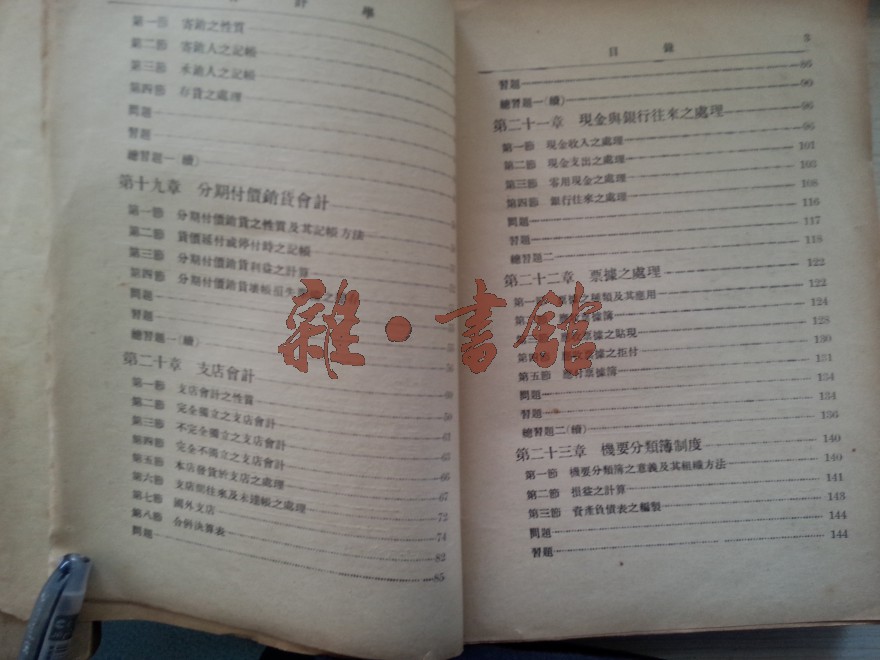 計 學
第一節 寄銷之性質
第二節 寄銷人之記帳
第三節 承銷人之記帳
第四節 存貨之處理
問題
習題
總習題一(續)
第十九章 分期付價銷貨會計
第一節 分期付價銷貨之性質及其記帳方法
第二節 貨價延付或停付時之記帳
第三節 分期付價銷貨利益之計算
第四節 分期付價銷貨壞帳損失
問題
習題
總習題一(續)
第二十章 支店會計
第一節 支店會計之性質
第二節 完全獨立之支店會計
第三節 不完全獨立之支店會計 61
第四節 完全不獨立之支店會計
第五節 本店發貨於支店之處理 66
第六節 支店間往來及未達帳之處理 67
第七節 國外支店 72
第八節 合併決算表 74
問題 82
85
目錄 3
習題 86
總習題一(續) 90
第二十一章 現金與銀行往來之處理 96
第一節 現金收入之處理 96
第二節 現金支出之處理 101
第三節 零用現金之處理 103
第四節 銀行往來之處理 108
問題 116
習題 117
總習題二 118
第二十二章 票據之處理 122
第一節 票據之種類及其應用 122
第二節 票據簿 124
第三節 票據之貼現 128
第四節 票據之拒付 130
第五節 應付票據簿 131
問題 134
習題 134
總習題二(續) 136
第二十三章 機要分類簿制度 140
第一節 機要分類簿之意義及其組織方法 140
第二節 損益之計算 141
第三節 資產負債表之編製 143
問題 144
習題 144
雜·書館